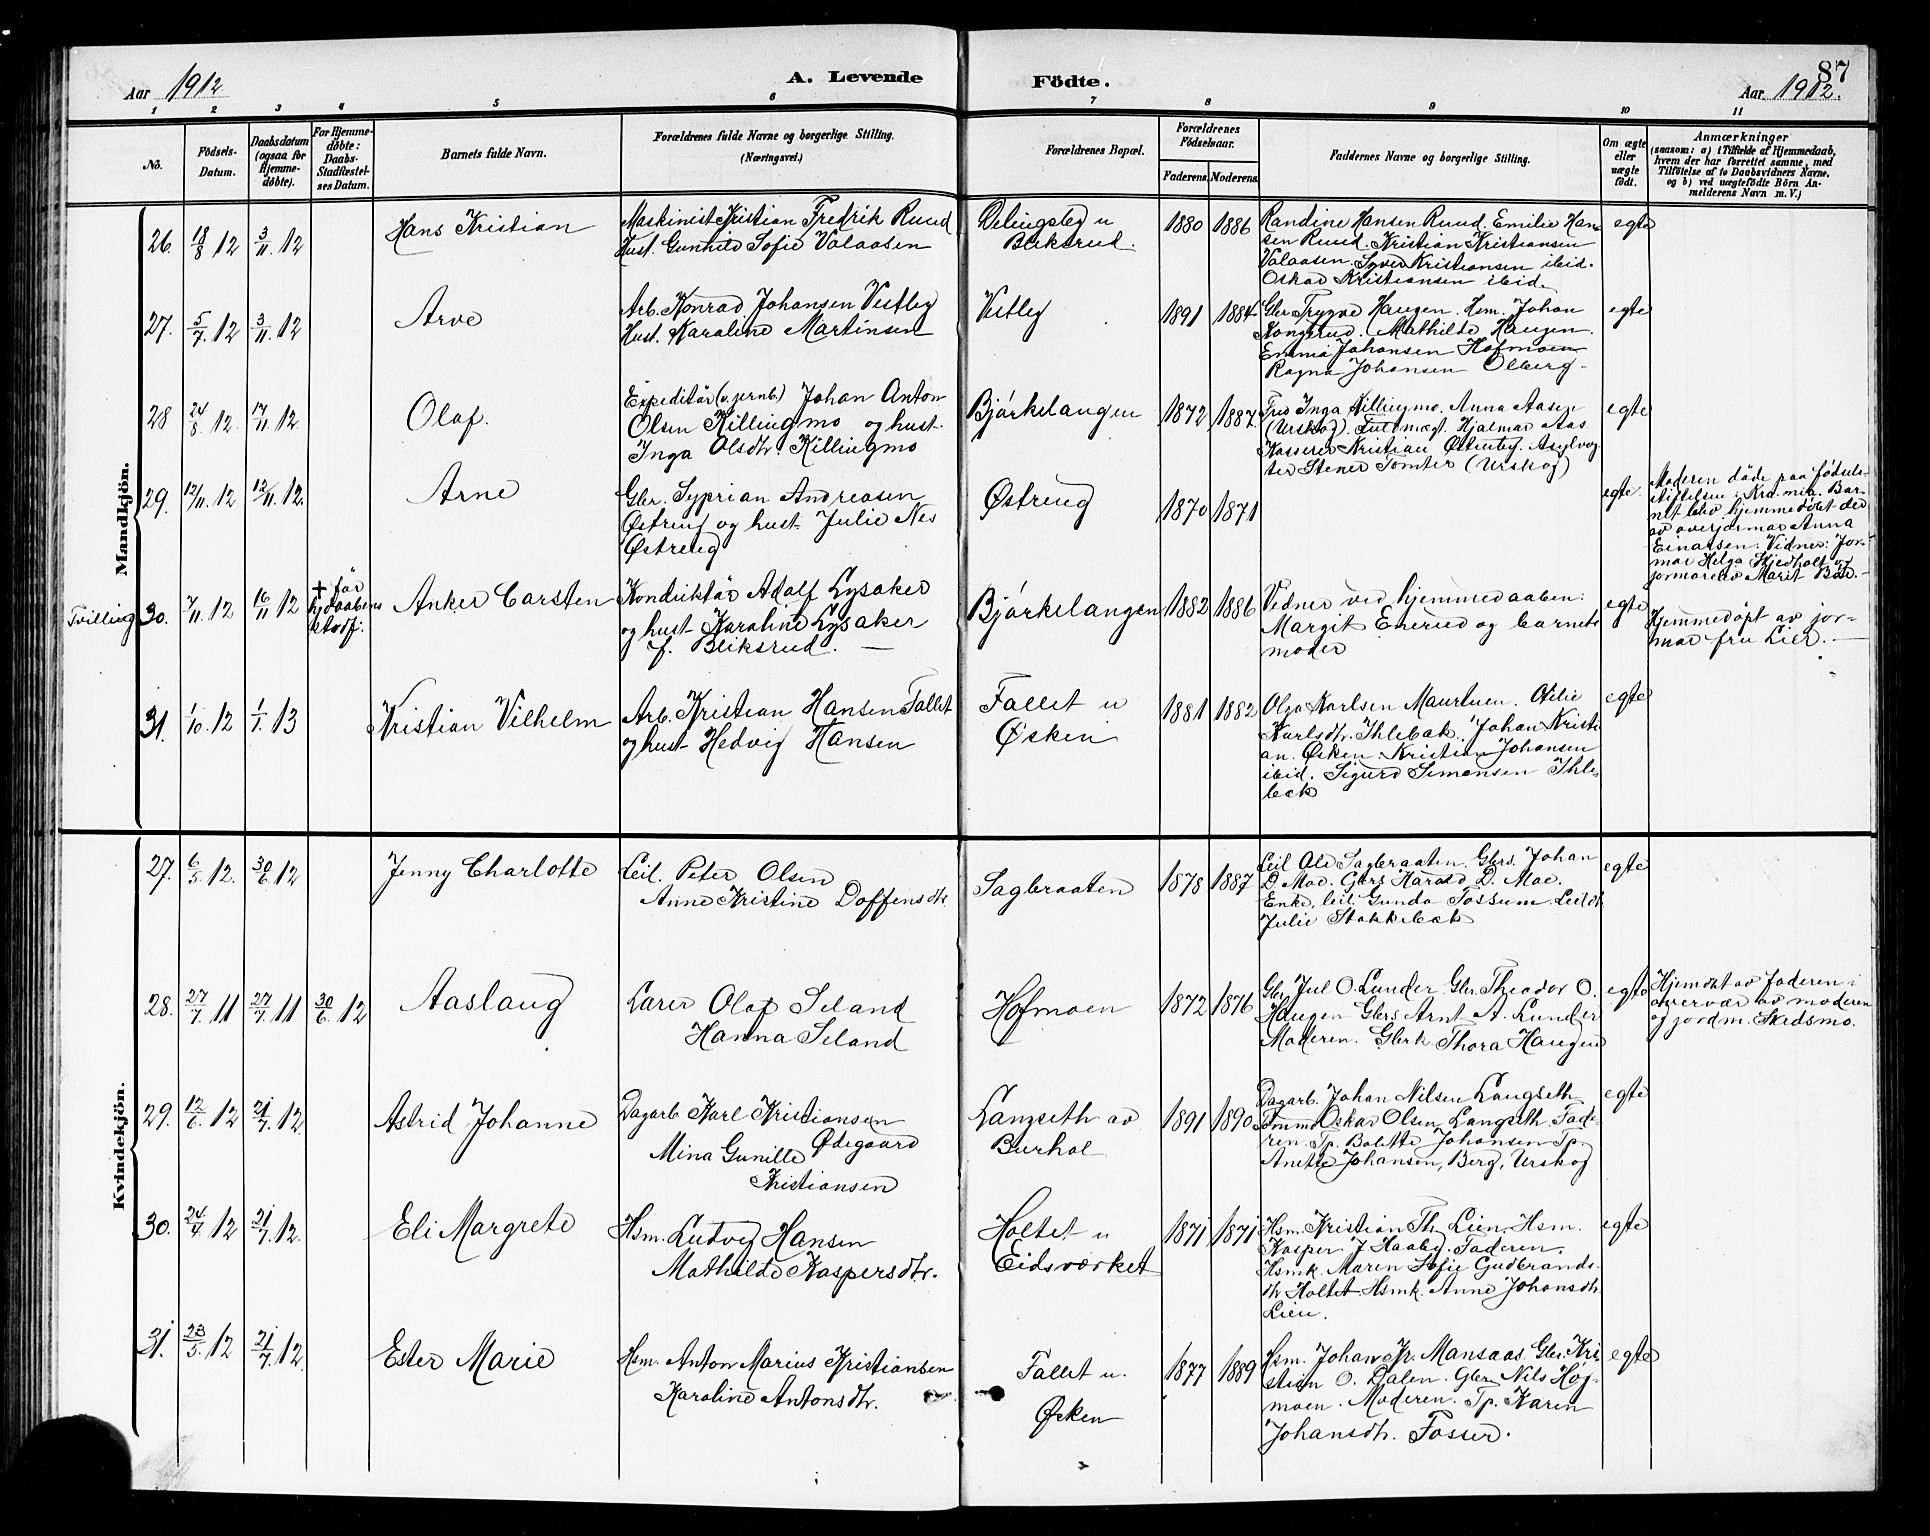 Aar 1912
A. Levende
Födte.
87
Aar 1912.
1 2 3 4 5 6 7 8 9 10 11
No.
Födsels-Datum.
Daabsdatum (ogsaa for Hjemme-döbte).
For Hjemme-döbte: Daabs-Stadfæstel-ses Datum.
Barnets fulde Navn.
Forældrenes fulde Navne og borgerlige Stilling.
(Næringsvei.)
Forældrenes Bopæl.
Forældrenes Födselsaar.
Faderens. Moderens.
Faddernes Navne og borgerlige Stilling.
Om ægte eller uægte födt.
Anmærkninger
(saasom: a) i Tilfælde af Hjemmedaab,
hvem der har forrettet samme, med
Tilföielse af to Daabsvidners Navne,
og b) ved uægtefödte Börn An-
melderens Navn m. V.)
Mandkjön.
26. 18/8 12 3/11. 12
Hans Kristian
Maskinist Kristian Fredrik Ruud
Hust. Gunhild Sofie Valaasen
u
Bliksrud.
1880 1886
Randine Hansen Ruud. Emilie Han-
sen Ruud. Kristian Kristiansen
Valaasen. Syver Kristiansen ibid.
Oskar Kristiansen ibid.
egte
27. 5/7. 12 3/11. 12
Arve
Arb. Konrad Johansen Vestby
Hust. Karoline Martinsen
Vestby
1891 1884
Gbr. Trygve Haugen. Hsm. Johan
Kongsrud. Mathilde Haugen.
Emma Johansen Hofmoen
Ragna Johansen Olberg.
egte
28 24/8. 12. 17/11. 12
Olaf.
Expeditör (v. jernb.) Johan Anton
Olsen Killingmo og hust.
Inga Olsdtr. Killingmo
Bjørkelangen
1872 1887.
Fru Inga Killingmo. Anna Aasen
(Urskog). Fuldmægt. Hjalmar Aas
Kasserer Kristian Østenby. Asylvog
ter Stener Tomter (Urskog)
egte
29. 12/11. 12 12/11. 12.
Arne
Gbr. Syprian Andreasen
Østreng og hust. Julie Nes
Østreng
Østreng
1870 1871
egte.
Moderen døde paa fødsels-
stiftelsen i Kra.nia. Bar-
net blev hjemmedöbt der
av overjormor Anna
Einarsen. Vidner: Jor-
mor Helga Skjedholt og
jormorelev Marit Bøe. -
Tvilling 30. 7/11. 12 16/11 12
+ før
hjdaabens
stadf.
Anker Carsten
Konduktör Adolf Lysaker
og hust. Karoline Lysaker
f. Bliksrud. —
Bjørkelangen
1882 1886
Vidner ved hjemmedaaben:
Margit Enerud og barnets
moder
egte
Hjemmedöpt av jor-
mor fru Lier. —
31. 1/10. 12 1/1. 13
Kristian Vilhelm
Arb. Kristian Hansen Fallet
og hust. Hedvig Hansen
Fallet u
Øsken
1881 1882
Olga Karlsen Maurtuen. Ofilie
Karlsdtr. Ihlebæk. Johan Kristi-
an. Øsken. Kristian Johansen
ibid. Sigurd Simensen Ihle-
bæk
egte
Kvindekjön.
27. 6/5. 12. 30/6. 12
Jenny Charlotte
Leil. Peter Olsen
Anne Kristine Doffensdtr.
Sagbraaten
1878 1887
Leil. Ole Sagbraaten. Gbrs. Johan
D. Moe. Gbrs Harald D. Moe.
Enke, leil. Gunda Fossum. Leildtr
Julie Stokkebæk
egte
28. 27/7. 11 27/7. 11 30/6. 12
Aaslaug
Lærer Olaf Seland
Hanna Seland
Hofmoen
1872 1876
Gbr. Jul O. Lunder Gbr. Theodor O.
Haugen Gbrs Arnt A. Lunder
Moderen. Gbrk. Thora Haugen
egte
Hjemdøbt av faderen i
overvær av moderen
og jordm. Skedsmo.
29. 12/6. 12 21/7. 12.
Astrid Johanne
Dagarb. Karl Kristiansen
Ødegaard
Mina Gunille
Kristiansen
Langseth av
Burhol
1891 1890
Dagarb. Johan Nilsen Langseth
Tømm. Oskar Olsen Langseth. Fade-
ren. Tp. Bolette Johansen Tp.
Anette Johansen, Berg, Urskog
egte
30. 24/4. 12 21/7. 12.
Eli Margrete
Hsm. Ludvig Hansen
Mathilde Kaspersdtr.
Holtet u
Eidsverket
1871 1871
Hsm. Kristian Th. Lien. Hsm.
Kasper J Haaby. Faderen.
Hsmk. Maren Sofie Gudbrands-
dtr Holtet. Hsmk. Anne Johansdtr.
Lien.
egte
31. 23/5. 12 21/7. 12.
Ester Marie
Hsm. Anton Marius Kristiansen
Karoline Antonsdtr.
Fallet u.
Øsken
1877 1889
Hsm. Johan Kr. Mansaas. Gbr. Kri-
stian O. Dalen. Gbr. Nils Høj-
moen. Moderen. Tp. Karen
Johansdtr. Fosser.
egte